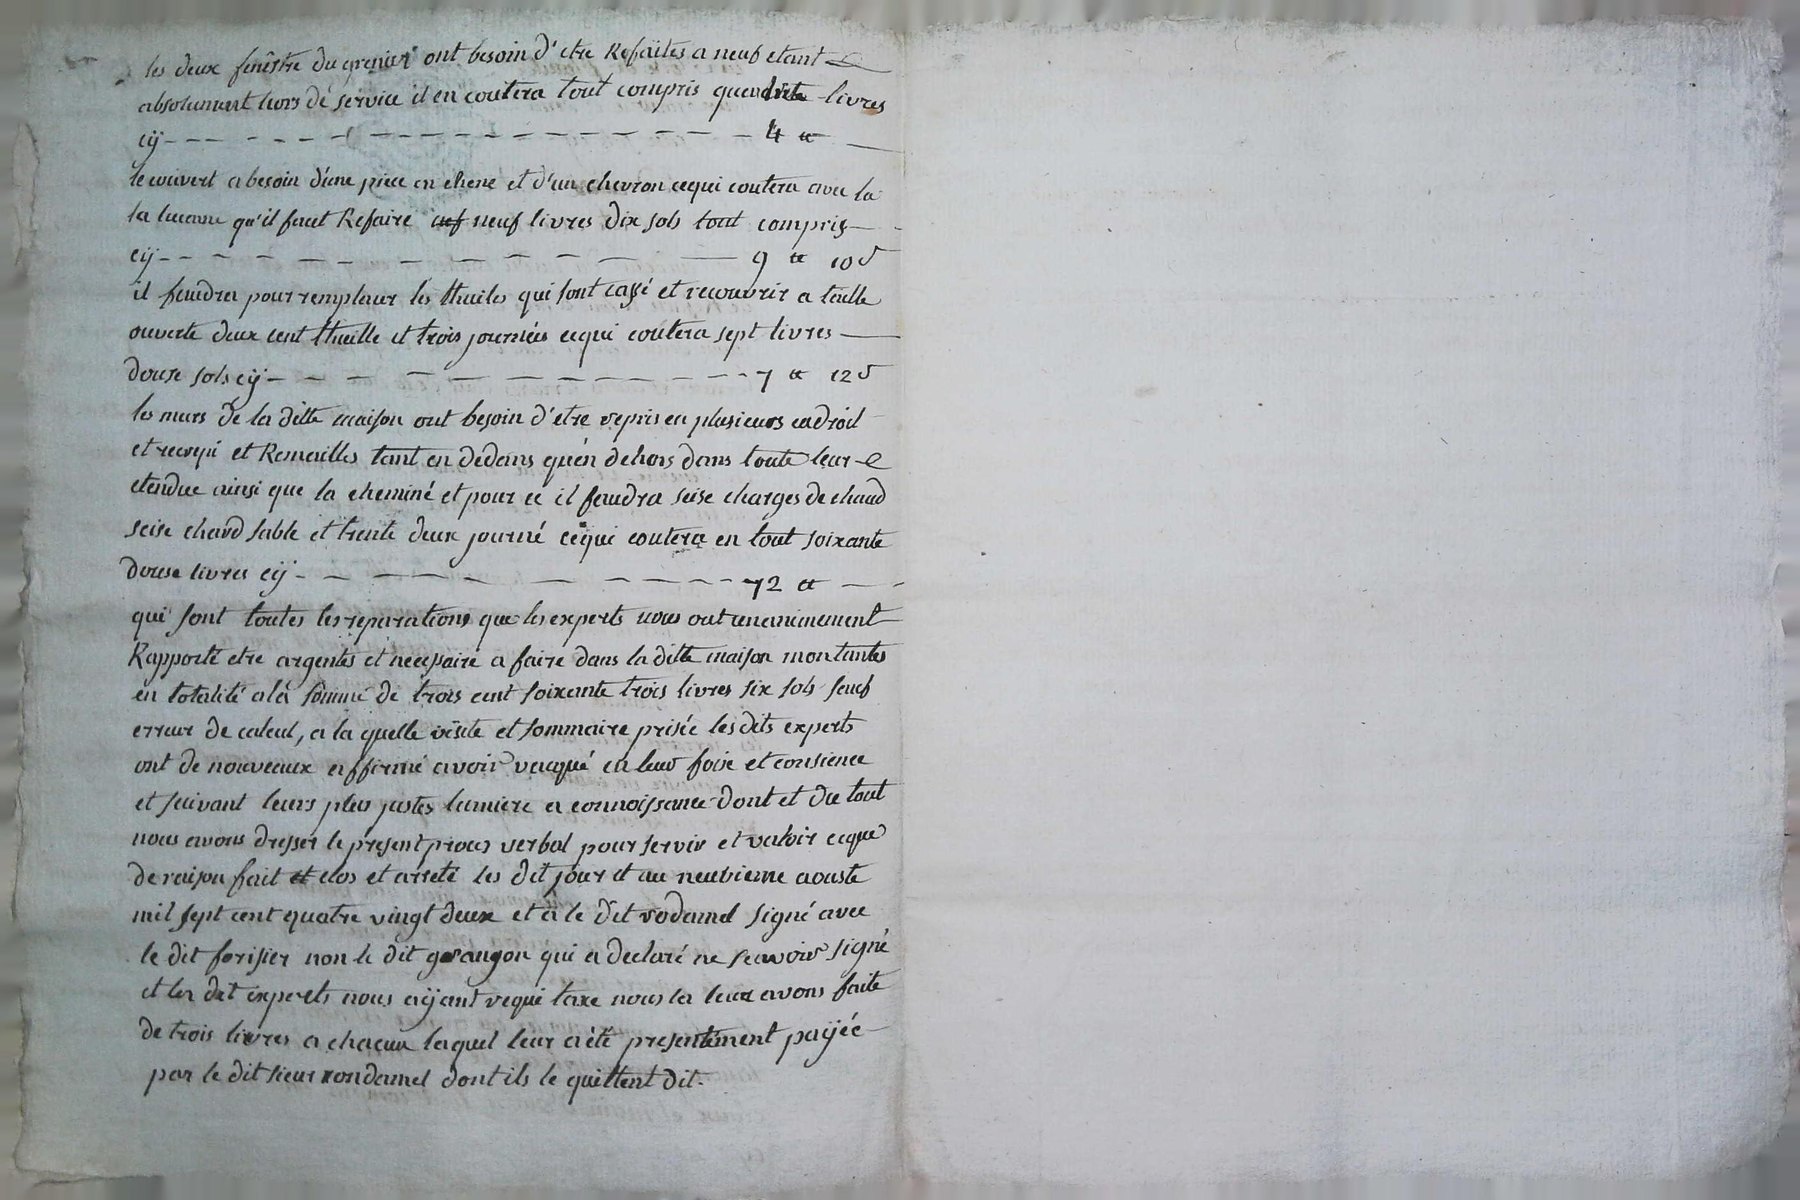 les deux finêstre du grenier ont besoin d'etre Refaites a neuf etant
absolument hors de service il en coutera tout compris livres
cÿ 4 tt
le couvert a besoin d'une piece en chene et d'un chevron cequi coutera avec la
la lucarne qu'il faut Refaire neuf livres dix sols tout compris
cÿ 9 tt 10 s
il faudra pour remplacer les thuiles qui sont cassé et recouvrir a taille
ouverte deux cent thuille et trois journées cequi coutera sept livres
douse sols cÿ 7 tt 12 s
les murs de la ditte maison ont besoin d'etre repris en plusieurs endroit
et recrepi et Remailles tant en dedans quén dehors dans toute leur
etendue ainsi que la cheminé et pour ce il faudra seise charges de chaud
seise chard sable et trente deux journé cequi coutera en tout soixante
douse livres cÿ 72 tt
qui sont toutes les reparations que les experts nous ont unanimement
Rapporté etre argentes et necessaire a faire dans la ditte maison montantes
en totalité a la somme de trois cent soixante trois livres six sols sauf
erreur de calcul, a la quelle visite et sommaire prisée les dits experts
ont de nouveaux affirmé avoir vacqué en leur foix et consience
et suivant leurs plus justes lumiere et connoissance dont et du tout
nous avons dresser le present proces verbal pour servir et valoir ceque
de raison fait et clos et arreté les dit jour et an neuvieme aouste
mil sept cent quatre vingt deux et a le dit rodamel signé avec
le dit forisier non le dit gorangon qui a declaré ne scavoir signé
et les dit experts nous aÿant requi taxe nous la leur avons faite
de trois livres a chacun laquel leur a été presentement paÿée
par le dit sieur rondamel dont ils le quittent dit.